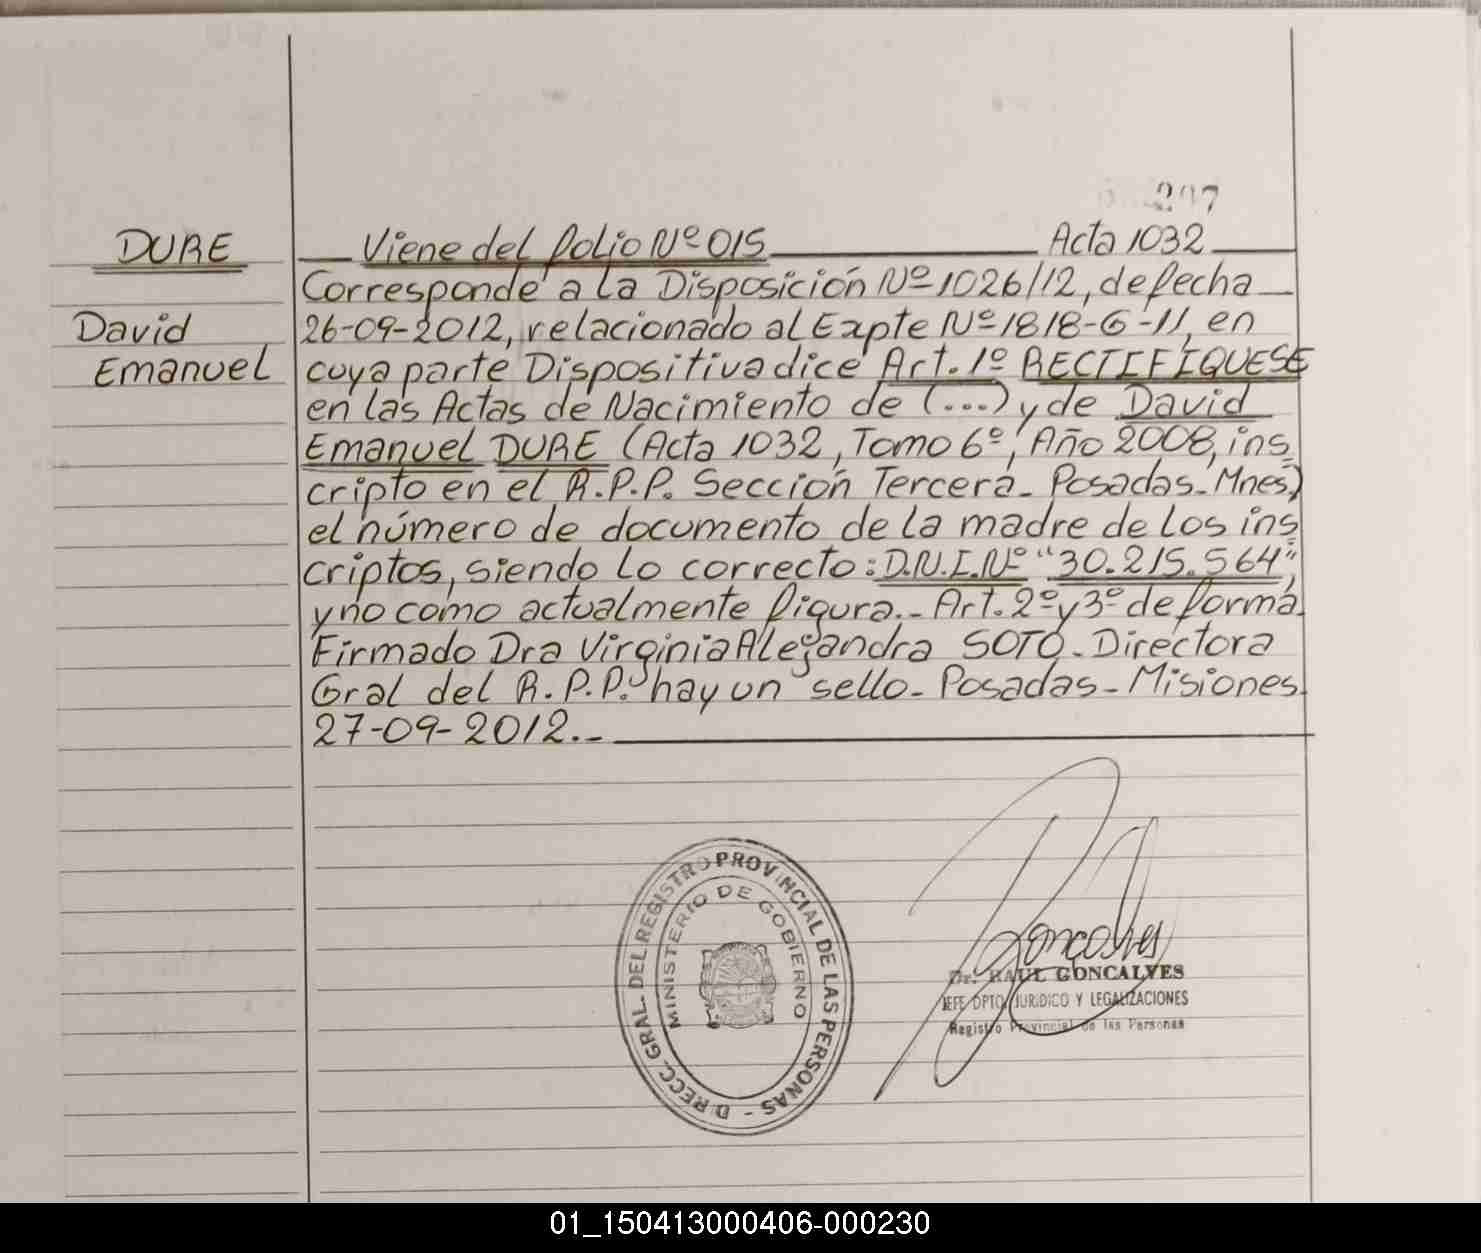 297
DURE
David
Emanuel
Viene del folio Nº 015 Acta 1032
Corresponde a la Disposición Nº 1026/12, de fecha
26-09-2012, relacionado al Expte Nº 1818-G-11, en
cuya parte Dispositiva dice Art. 1º RECTIFIQUESE
en las Actas de Nacimiento de (...) y de David
Emanuel DURE (Acta 1032, Tomo 6º, Año 2008, ins
cripto en el R.P.P. Sección Tercera - Posadas - Mnes)
el número de documento de la madre de los ins
criptos, siendo lo correcto: D.N.I. Nº "30.215.564",
y no como actualmente figura.- Art. 2º y 3º de forma.
Firmado Dra Virginia Alejandra SOTO - Directora
Gral del R.P.P. hay un sello - Posadas - Misiones
27-09-2012.-
DIRECC. GRAL. DEL REGISTRO PROVINCIAL DE LAS PERSONAS -
MINISTERIO DE GOBIERNO
Goncalves
Dr. RAUL GONCALVES
JEFE DPTO. JURIDICO Y LEGALIZACIONES
Registro Provincial de las Personas
01_150413000406-000230